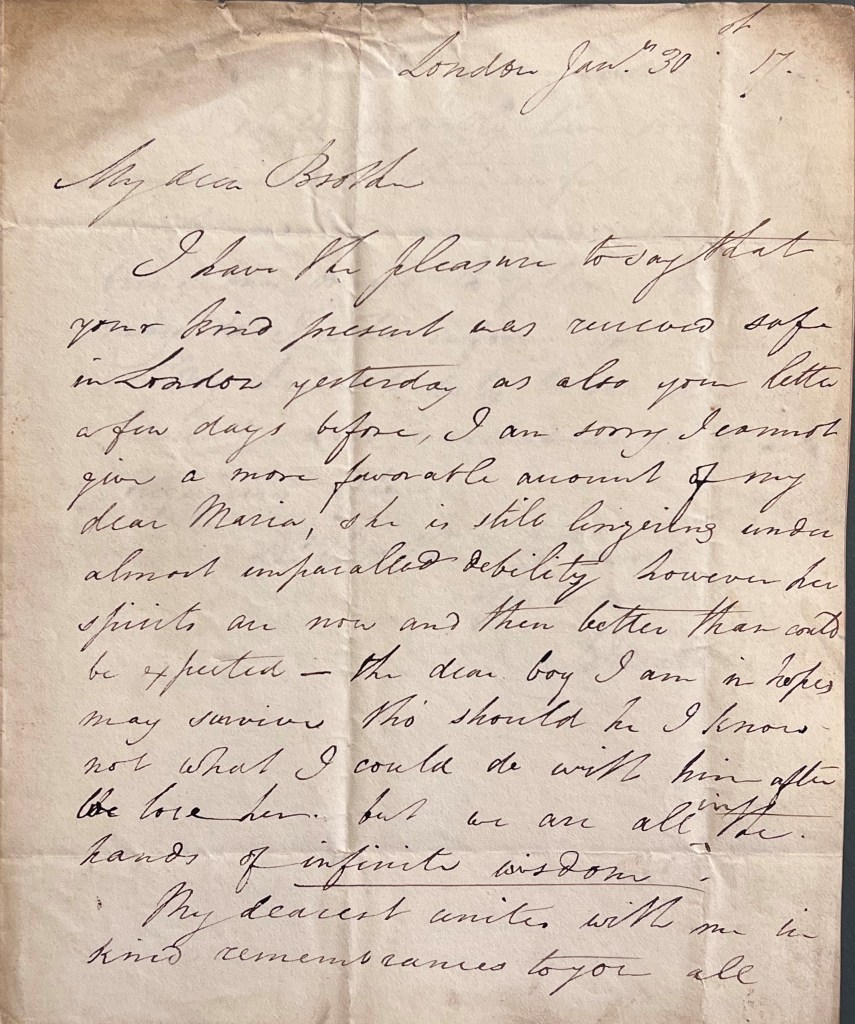 London Jany. 30th 17.
My dear Brother
I have the pleasure to say that
your kind present was received safe
in London yesterday as also your letter
a few days before, I am sorry I cannot
give a more favorable account of my
dear Maria, she is still lingering under
almost unparalled debility however her
spirits are now and then better than could
be expected — the dear boy I am in hopes
may survive tho' should he I know
not what I could do with him after
we lose her. but we are all in the
hands of infinite wisdom.
My dearest unites with me in
kind remembrances to you all